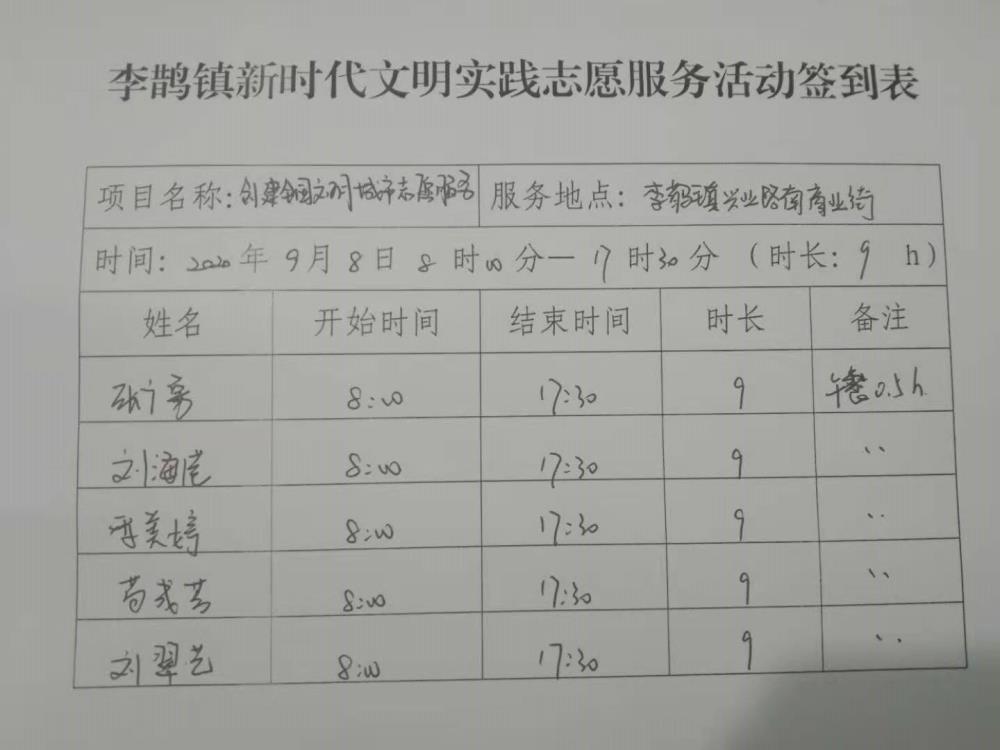 李鹊镇新时代文明实践志愿服务活动签到表
项目名称：创建全国文明城市志愿服务 服务地点：李鹊镇兴业路南商业街
时间：2020年9月8日8时00分—17时30分（时长：9 h）
姓名 开始时间 结束时间 时长 备注
8:00 17:30 9 午餐0.5h
刘海 8:00 17:30 9 ··
美婷 8:00 17:30 9 ··
8:00 17:30 9 ··
刘翠芝 8:00 17:30 9 ··